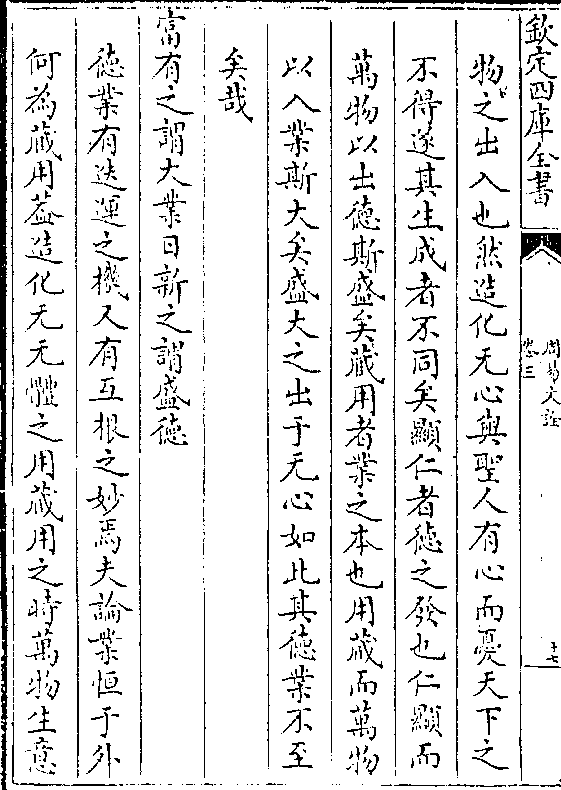 欽定四庫全書
周易大全
卷三
十七
物之出入也然造化无心與聖人有心而憂天下之
不得遂其生成者不同矣顯仁者德之發也仁顯而
萬物以出德斯盛矣藏用者業之本也用藏而萬物
以入業斯大矣盛大之出于无心如此其德業不至
矣哉
富有之謂大業日新之謂盛德
德業有迭運之機又有互根之妙焉夫論業恒于外
何為藏用葢造化无无體之用藏用之時萬物生意